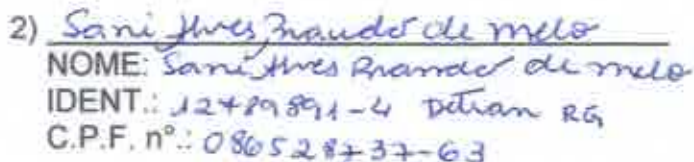 2) Sani Alves Brandão de melo
NOME: Sani Alves Brandão de melo
IDENT.: 12489891-4 Detran RG
C.P.F. nº.: 086528737-63